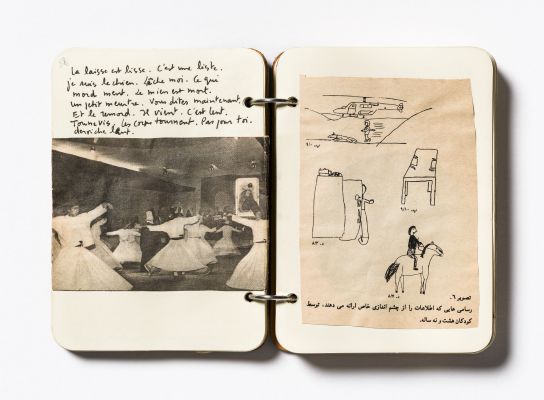 La laisse est lisse. C'est une liste.
je suis le chien. Lâche moi. Ce qui
mord ment. Le mien est mort.
un petit meurtre. Vous dites maintenant.
Et le remord. Il vient. C'est lent.
Tournevis, les corps tournent. Pas pour toi.
derviche lent.
تصویر ٦-
رسامی هایی که اطلاعات را از چشم اندازی خاص ارائه می دهند، توسط
کودکان هشت و نه ساله.